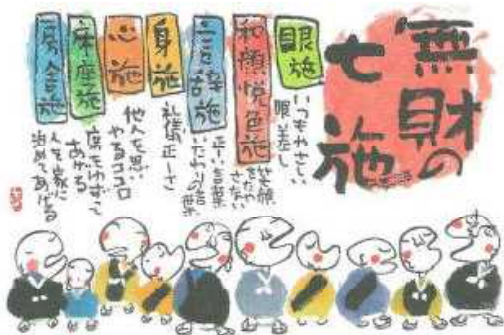 無財の
七施
眼施
いつもやさしい
眼差し
和顔悦色施
笑顔
をたやさない
言辞施
正しい言葉
いたわりの言葉
身施
礼儀正しさ
心施
他人を思い
やるココロ
床座施
席をゆずって
あげる
房舎施
人を家に
泊めてあげる